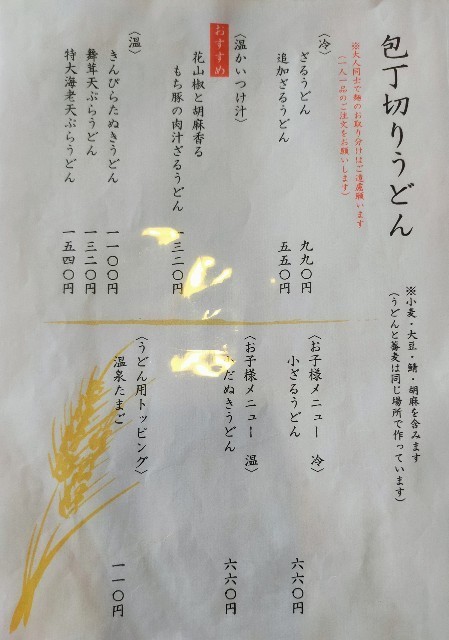 包丁切りうどん
※大人同士で麺のお取り分けはご遠慮願います
(一人一品のご注文をお願いします)
〈冷〉
ざるうどん 九九〇円
追加ざるうどん 五五〇円
〈温かいつけ汁〉
おすすめ
花山椒と胡麻香る
もち豚の肉汁ざるうどん 一三二〇円
〈温〉
きんぴらたぬきうどん 一一〇〇円
舞茸天ぷらうどん 一三二〇円
特大海老天ぷらうどん 一五四〇円
※小麦・大豆・鯖・胡麻を含みます
(うどんと蕎麦は同じ場所で作っています)
〈お子様メニュー 冷〉
小ざるうどん 六六〇円
〈お子様メニュー 温〉
だぬきうどん 六六〇円
〈うどん用トッピング〉
温泉たまご 一一〇円